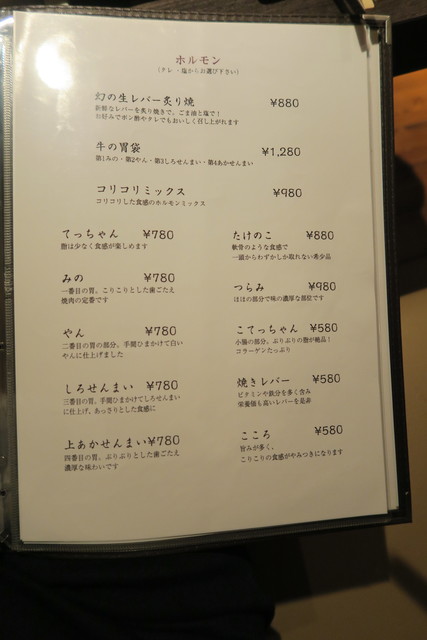 ホルモン
(タレ・塩からお選び下さい)
幻の生レバー炙り焼 ¥880
新鮮なレバーを炙り焼きで。ごま油と塩で!
お好みでポン酢やタレでもおいしく召し上がれます
牛の胃袋 ¥1,280
第1みの・第2やん・第3しろせんまい・第4あかせんまい
コリコリミックス ¥980
コリコリした食感のホルモンミックス
てっちゃん ¥780
脂は少なく食感が楽しめます
みの ¥780
一番目の胃。こりこりとした歯ごたえ
焼肉の定番です
やん ¥780
二番目の胃の部分。手間ひまかけて白い
やんに仕上げました
しろせんまい ¥780
三番目の胃。手間ひまかけてしろせんまい
に仕上げ、あっさりとした食感に
上あかせんまい ¥780
四番目の胃。ぷりぷりとした歯ごたえ
濃厚な味わいです
たけのこ ¥880
軟骨のような食感で
一頭からわずかしか取れない希少品
つらみ ¥980
ほほの部分で味の濃厚な部位です
こてっちゃん ¥580
小腸の部分。ぷりぷりの脂が絶品!
コラーゲンたっぷり
焼きレバー ¥580
ビタミンや鉄分を多く含み
栄養価も高いレバーを是非
こころ ¥580
旨みが多く、
こりこりの食感がやみつきになります